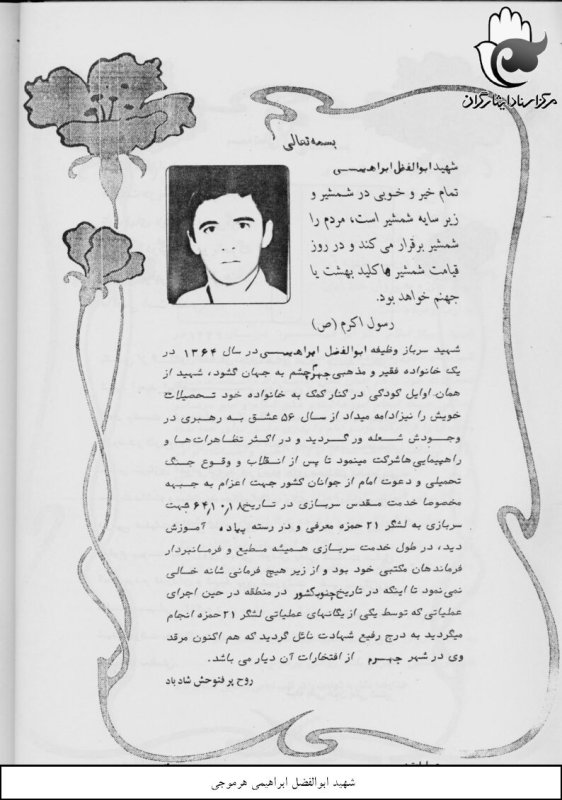 مرکز اسناد ایثارگران
بسمه تعالی
شهید ابوالفضل ابراهیمی
تمام خیر و خوبی در شمشیر و
زیر سایه شمشیر است، مردم را
شمشیر برقرار می کند و در روز
قیامت شمشیر ها کلید بهشت یا
جهنم خواهد بود.
رسول اکرم (ص)
شهید سرباز وظیفه ابوالفضل ابراهیمی در سال ۱۳۶۴ در
یک خانواده فقیر و مذهبی جهرم چشم به جهان گشود، شهید از
همان اوایل کودکی در کنار کمک به خانواده خود تحصیلات
خویش را نیز ادامه میداد از سال ۵۶ عشق به رهبری در
وجودش شعله ور گردید و در اکثر تظاهرات ها و
راهپیمایی ها شرکت مینمود تا پس از انقلاب و وقوع جنگ
تحمیلی و دعوت امام از جوانان کشور جهت اعزام به جبهه
مخصوصا خدمت مقدس سربازی در تاریخ ۶۴٫۱۰٫۱۸ جهت
سربازی به لشگر ۲۱ حمزه معرفی و در رسته پیاده آموزش
دید، در طول خدمت سربازی همیشه مطیع و فرمانبردار
فرماندهان مکتبی خود بود و از زیر هیچ فرمانی شانه خالی
نمی نمود تا اینکه در تاریخ جنوب کشور در منطقه در حین اجرای
عملیاتی که توسط یکی از یگانهای عملیاتی لشگر ۲۱ حمزه انجام
میگردید به درج رفیع شهادت نائل گردید که هم اکنون مرقد
وی در شهر جهرم از افتخارات آن دیار می باشد.
روح پر فتوحش شاد باد
شهید ابوالفضل ابراهیمی هرموجی